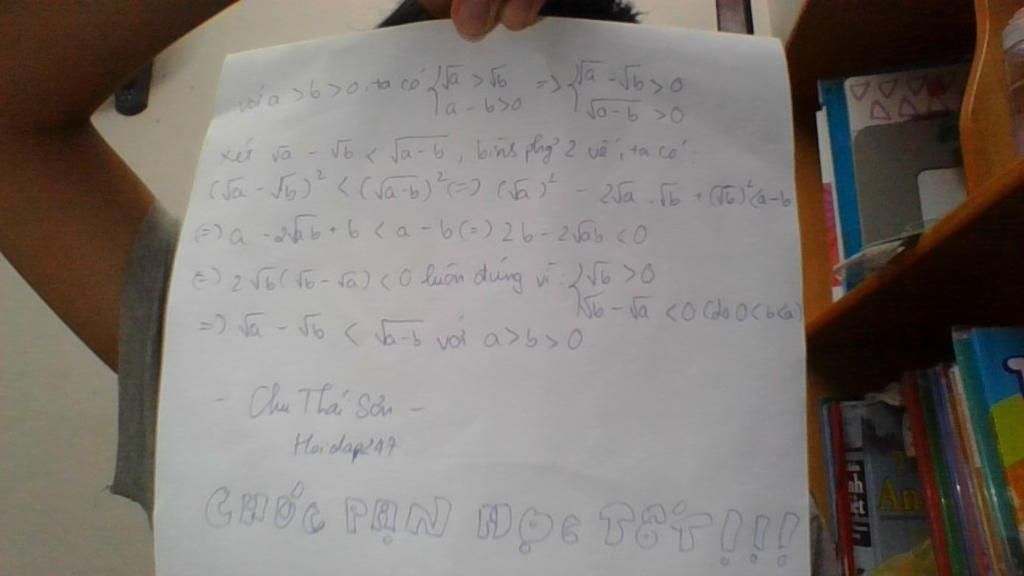 với a > b > 0, ta có { √a > √b => { √a - √b > 0
a - b > 0 √(a-b) > 0
Xét √a - √b < √(a-b), bình phg 2 vế, ta có:
(√a - √b)² < (√(a-b))² (=) (√a)² - 2√a . √b + (√b)² < a-b
(=) a - 2√ab + b < a - b (=) 2b - 2√ab < 0
(=) 2√b(√b - √a) < 0 luôn đúng vì: { √b > 0
√b - √a < 0 (do 0 < b < a)
=) √a - √b < √(a-b) với a > b > 0
- Chu Thái Sơn -
Hoidap247
CHÚC BẠN HỌC TỐT!!!
An